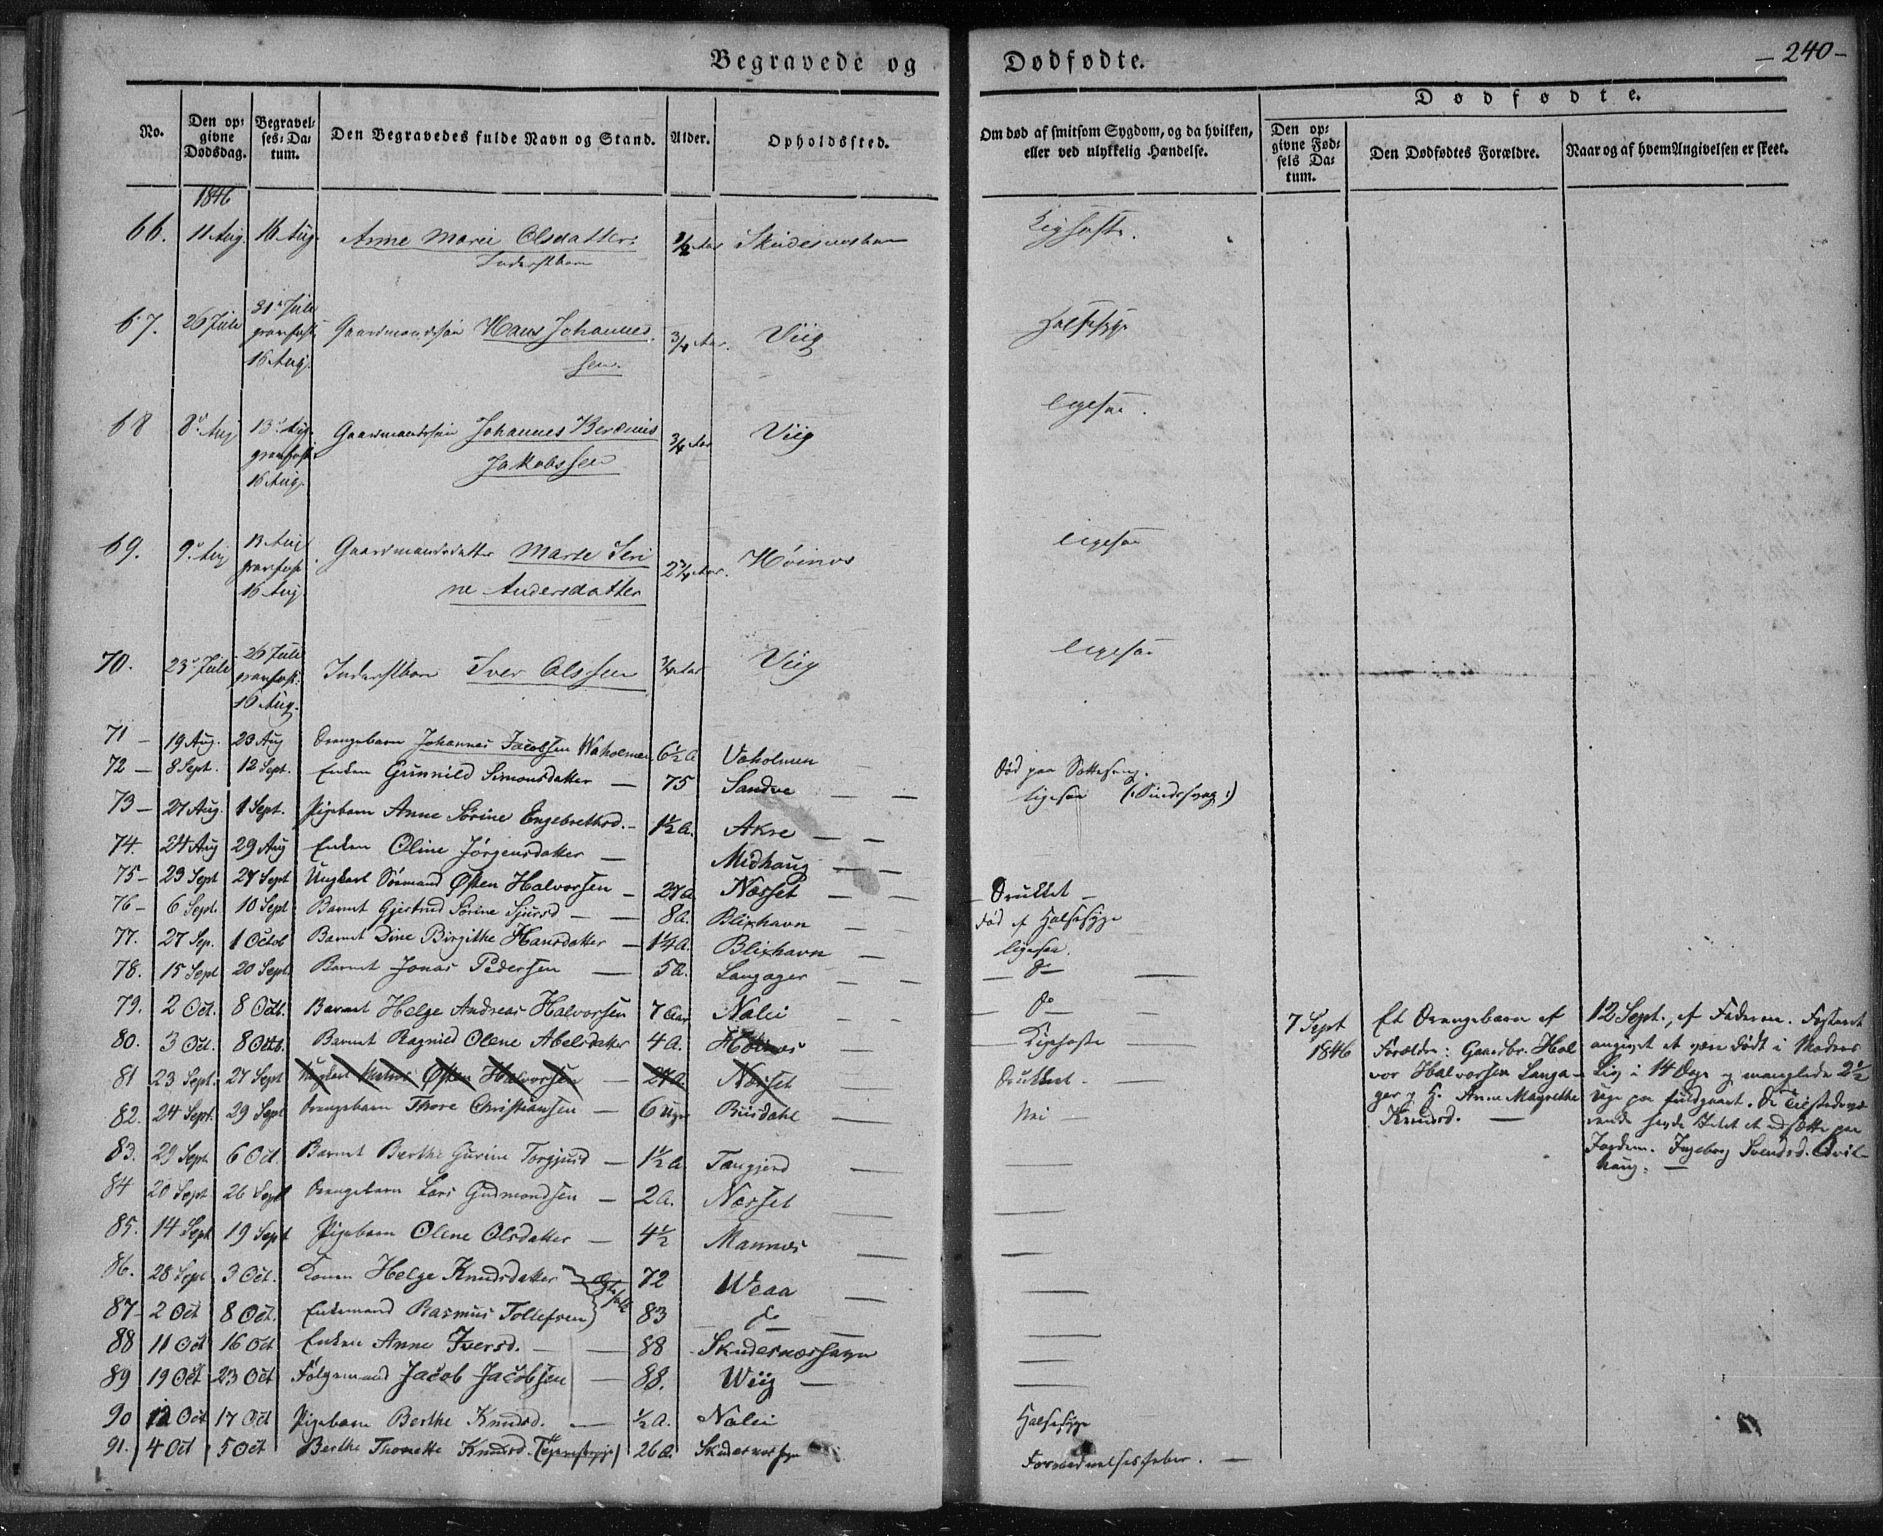 Begravede og
Dødfødte.
- 240 -
No.
Den opgivne Dødsdag.
Begravelses-Datum.
Den Begravedes fulde Navn og Stand.
Alder.
Opholdssted.
Om død af smitsom Sygdom, og da hvilken, eller ved ulykkelig Hændelse.
Dødfødte.
Den opgivne Fødsels Datum.
Den Dødfødtes Forældre.
Naar og af hvem Angivelsen er skeet.
1846
66. 11 Aug. 16 Aug. Anne Marie Olsdatter 1/2 Aar Kighoste.
Inderstbarn
67. 26 Juli 31 Juli Gaardmandssøn Hans Johannes 3/4 Aar. Viig Halssyge
16 Aug. sen.
68 8 Aug 13 Aug. Gaardmandssøn Johannes Berdinus 3/4 Aar Viig ligesaa.
16 Aug. Jakobssen
69. 9 Aug 13 Aug Gaardmandsdatter Marte Seri Aar. Høines ligesaa
16 Aug ne Andersdatter
70. 23 Juli 26 Juli Inderstbarn Iver Olssen Viig ligesaa
16 Aug.
71 - 19 Aug. 23 Aug Drengebarn Johannes Jacobsen Waholmen 6 1/2 A Vaholmen
72 - 8 Sept. 12 Sept. Enken Gunnild Simonsdatter - 75 Sandve Død paa Sottesæng.
73 - 27 Aug. 1 Sept. Pigebarn Anne Serine Engebrethsd. - 1 1/2 A. Akre ligesaa
74. 24 Aug 29 Aug Enken Oline Jørgensdatter - Midhaug
75 - 23 Sept 27 Sept Ungkarl Sømand Østen Halvorsen - 27 A. Næsset Drukket -
76 - 6 Sept. 10 Sept. Barnet Gjertrud Serine Sjursd - 8 A. Blixhavn død af Halssyge
77. 27 Sep. 1 Octob Barnet Dine Birgithe Hansdatter - 1 1/4 A. Blixhavn ligesaa.
78. 15 Sept 20 Sept. Barnet Jonas Pedersen - 5 A. Langager - do -
79. 2 Oct. 8 Octb. Barnet Helge Andreas Halvorsen 7 Aar Nalei do
80. 3 Oct. 8 Octb. Barnet Ragnild Olene Abelsdatter 4 A. Høines Kighoste
81 23 Sept. 27 Sept Ungkarl Matros Østen Halvorsen - 27 A. Næsset Drukket. -
82. 24 Sept. 29 Sept Drengebarn Thore Christiansen - 6 Uger Busdahl Nei
83. 29 Sept 6 Oct. Barnet Berthe Gurine Torgjusd - 1 1/2 A. Tangjerd
84 20 Sept 26 Sept Drengebarn Lars Gudmondsen - 2 A. Næsset
85. 14 Sept 19 Sept Pigebarn Olene Olsdatter - 4 1/2 Mannes
86. 28 Sept 3 Oct. Konen Helge Knudsdatter 72 Weaa
87 - 2 Oct 8 Oct. Enkemand Rasmus Tollefsen 83 do
88 11 Oct 16 Oct Enken Anne Iversd. - 88 Skudesnæshavn
89 19 Oct 23 Oct Følgemand Jacob Jacobsen - 88. Wiig -
90 12 Oct 17 Oct Pigebarn Berthe Knudsd. - 1/2 A. Nalei Halssyge
91. 4 Oct 5 Oct Berthe Thonette Knudsd. 26 A.
7 Sept 1846
Et Drengebarn af
Forældre: Gaardbr. Hal
vor Halvorsen Langa-
ger og H. Anne Magrethe
Knudsd. -
12 Sept., af Faderen. Fosteret
angivet at være dødt i Moders
Liv i 14 Dage og manglede 2 1/2
Uge paa fuldgaaet. De Tilstedevæ
rende
Jorden. Ingeborg Svendsd.
haug. -